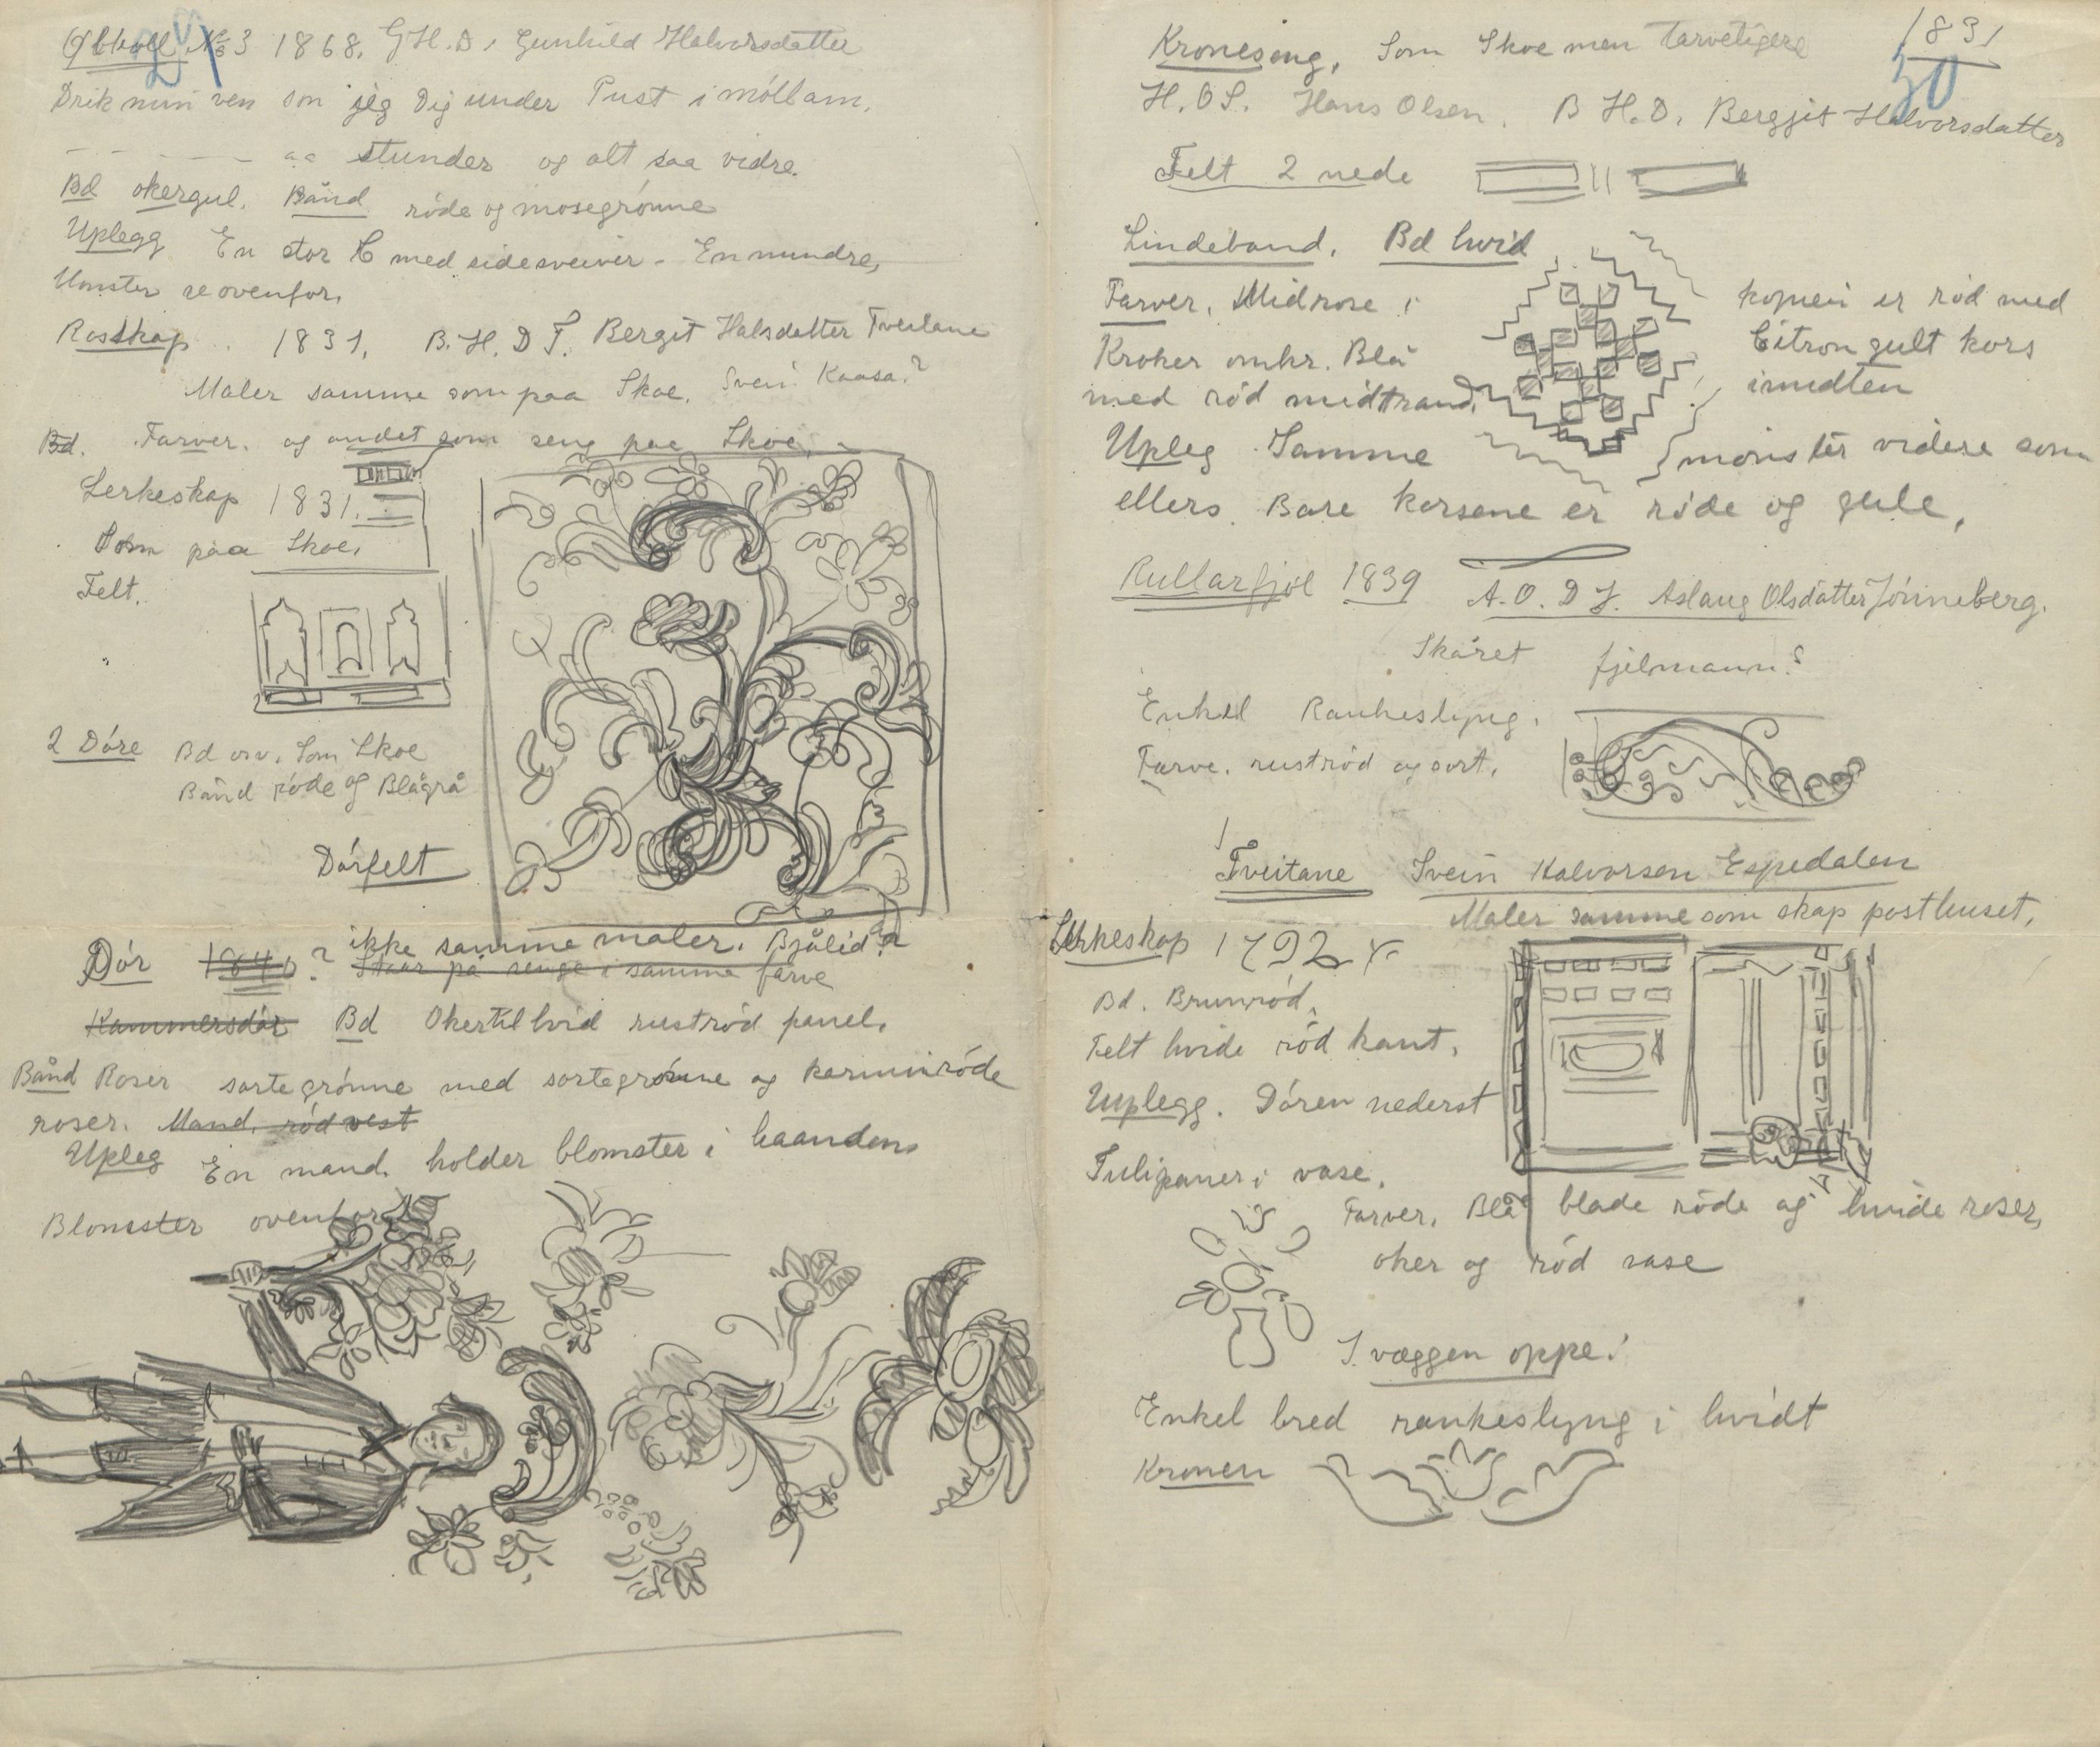 Ølboll No 3 1868. G H. D. Gunhild Halvorsdatter
29
Drik min ven son jeg Dig under Pust i mollam.
stunder og alt saa vidre.
Bd okergul. Bånd røde og mosegrønne
Uplegg En stor C med sidesveiver - En mindre,
se ovenfor.
Rosskap 1831. B. H. D T. Bergit Halsdatter Tveitane
Maler samme som paa Skoe. Svein Kaasa?
Bd. Farver. og andet som seng paa Skoe,
Lerkeskap 1831.
Som paa Skoe.
Felt.
2 Døre Bd Som Skoe
Bånd røde og Blågrå
Dørfelt
Dør 1840? ikke samme maler. Bjålid?
Staar på senge i samme farve
Kammersdør Bd Okertil hvid rustrød panel.
Bånd Roser sortegrønne med sortegrønne og karminrøde
roser. Mand. rød vest
Upleg En mand. holder blomster i haanden
Blomster ovenfor
1831
30
Kroneseng, Som Skoe men tarveligere
H. O S. Hans Olsen. B H. D. Bergjit Halvorsdatter
Felt 2 nede
Lindeband. Bd hvid
Farver. Midrose i
Kroker omkr. Blå
med rød midtrand.
kopien er rød med
Citrongult kors
imidten
Upleg Samme mønster videre som
ellers. Bare korsene er røde og gule,
Rullarfjøl 1839 A. O. D J. Aslaug Olsdatter Jønneberg.
Skåret fjelmann?
Enkel Rankeslyng.
Farve. rustrød og sort.
Tveitane Svein Halvorsen Espedalen
Maler samme som skap posthuset.
Lerkeskap 1792
Bd. Brunrød.
Felt hvide rød kant.
Uplegg. Døren nederst
Tulipaner i vase.
Farver. Blå blade røde og hvide roser,
oker og rød vase
I væggen oppe.
Enkel bred rankeslyng i hvidt
Kronen